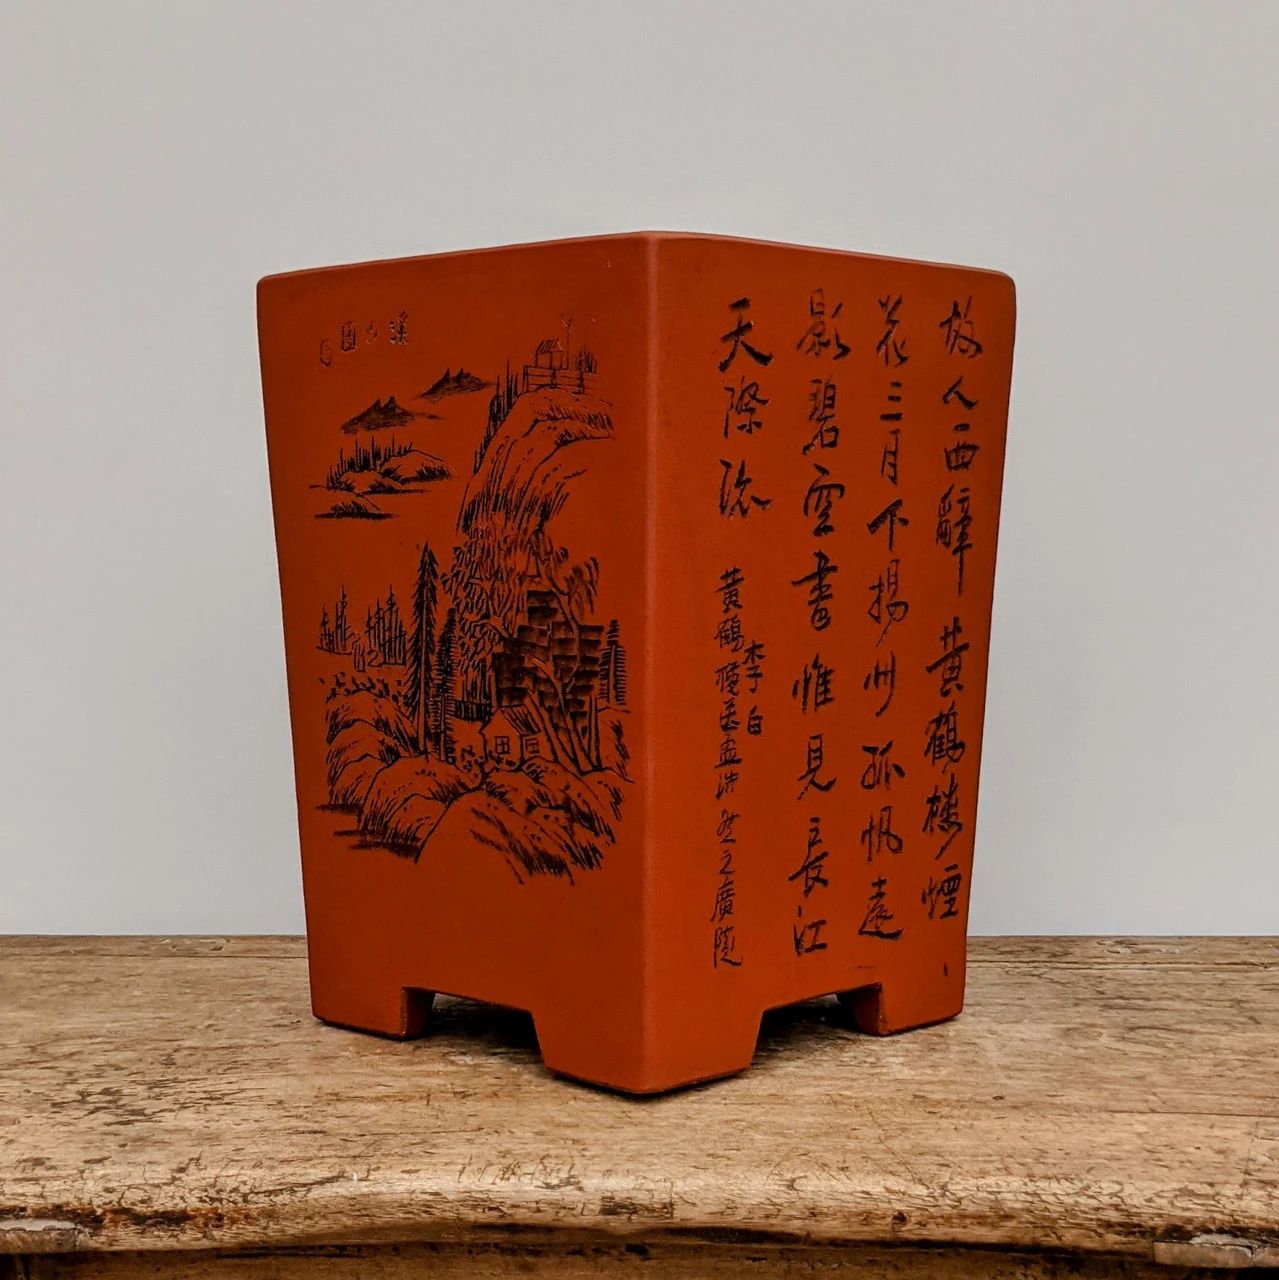 溪山圖
故人西辭黄鶴樓煙
花三月下揚州孤帆遠
影碧空盡惟見長江
天際流
李白
黄鶴樓送孟浩然之廣陵